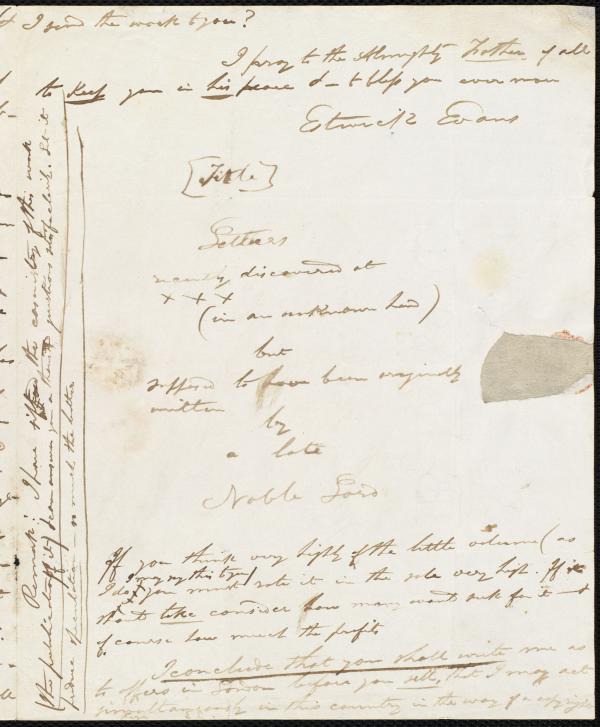 & I send the work to you?
I pray to the Almighty Father of all
to keep you in his peace & to bless you ever more
Estwick Evans
[Title]
Letters
recently discovered at
x x x
(in an unknown hand)
but
supposed to have been originally
written
by
a late
Noble Lord
If you think very highly of the little volume (as
I do I may say this to you)
you must rate it in the sale very high. If it
should take consider how many would ask for it &
of course how much the profits
I conclude that you shall write me as
to offers in London before you sell, that I may act
simultaneously in this country in the way of a copyright
Remark: I have sifted the casuistry of this work
(the published of it) I can answer you a thousand questions about it. Let it
produce speculation — so much the better